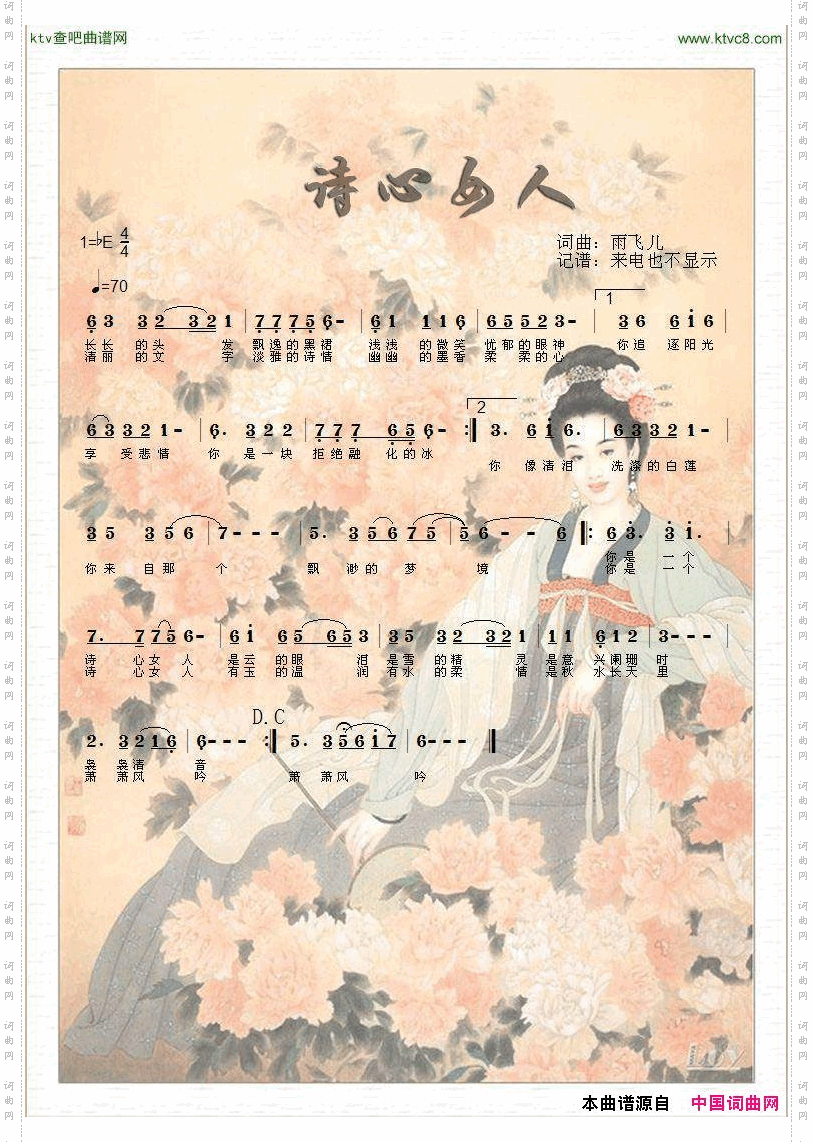 ktv查吧曲谱网
www.ktvc8.com
诗心女人
1=♭E 4/4
词曲：雨飞儿
记谱：来电也不显示
♩=70
1
6 3 3 2 3 2 1 | 7 7 7 5 6 - | 6 1 1 1 6 | 6 5 5 2 3 - | 6 3 6 i 6 |
长长 的头 发 飘逸的黑裙 浅浅 的微笑 忧郁的眼神 你追 逐阳光
清丽 的文 字 淡雅的诗情 幽幽 的墨香 柔柔的心
2
6 3 3 2 1 - | 6. 3 2 2 | 7 7 7 6 5 6 - :| 3. 6 i 6. | 6 3 3 2 1 - |
享 受悲情 你 是一块 拒绝融 化的冰
你 像清泪 洗涤的白莲
3 5 3 5 6 | 7 - - - | 5. 3 5 6 7 5 | 5 6 - - 6 |: 6 3. 3 i. |
你来 自那 个 飘 渺的 梦 境 你是 一个
你是 一个
7. 7 7 5 6 - | 6 i 6 5 6 5 3 | 3 5 3 2 3 2 1 | 1 1 6 1 2 | 3 - - - |
诗 心女 人 是云 的眼 泪 是雪 的精 灵 是意 兴阑珊 时
诗 心女 人 有玉 的温 润 有水 的柔 情 是秋 水长天 里
D.C
2. 3 2 1 6 | 6 - - - :| 5. 3 5 6 i 7 | 6 - - - ‖
袅 袅清 音
萧 萧风 吟 萧 萧风 吟
本曲谱源自 中国词曲网
词曲网